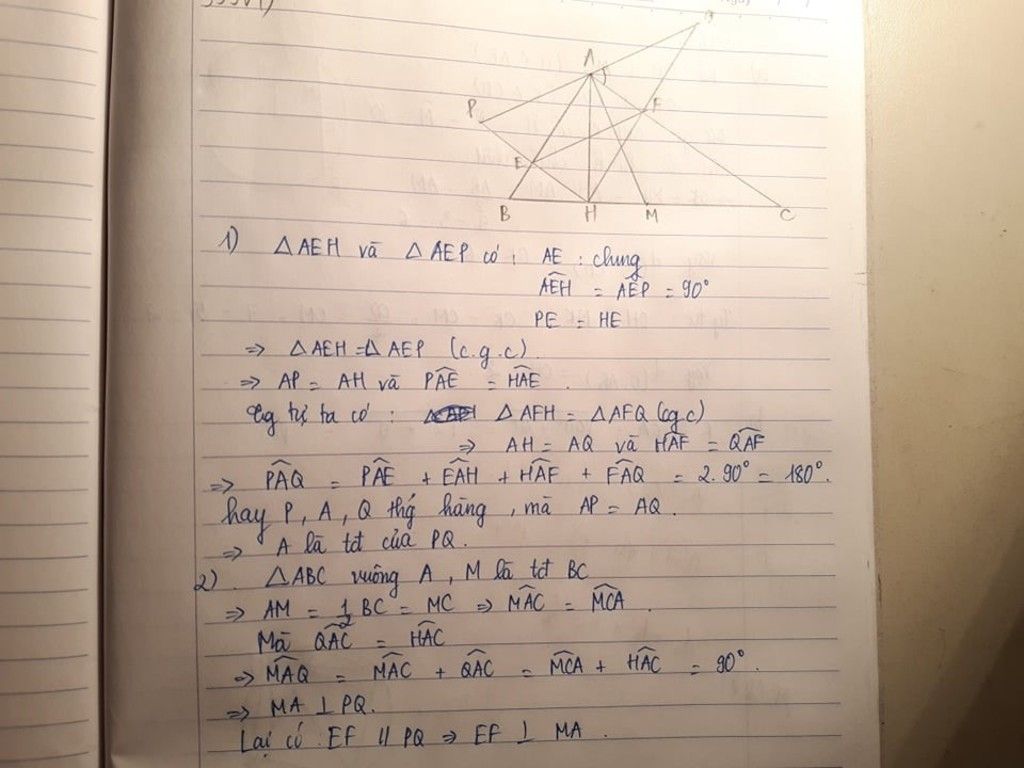 A
P
F
E
B H M C
1) △AEH và △AEP có : AE : chung
AEH^ = AEP^ = 90°
PE = HE
=> △AEH = △AEP (c.g.c).
=> AP = AH và PAE^ = HAE^ .
tự ta có : △AFH = △AFQ (cgc)
=> AH = AQ và HAF^ = QAF^
=> PAQ^ = PAE^ + EAH^ + HAF^ + FAQ^ = 2.90° = 180°.
hay P, A, Q thg hàng , mà AP = AQ .
=> A là tđ của PQ.
2) △ABC vuông A , M là tđ BC
=> AM = 1/2 BC = MC => MAC^ = MCA^ .
Mà QAC^ = HAC^
=> MAQ^ = MAC^ + QAC^ = MCA^ + HAC^ = 90°.
=> MA ⊥ PQ.
Lại có EF // PQ => EF ⊥ MA .